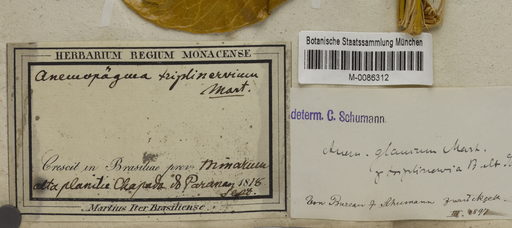 HERBARIUM REGIUM MONACENSE
Anemopàgma triplinervium
Mart.
Crescit in Brasiliae prov. Minarum
alta planitie Chapada do Paranan 1818
Sept.
Martius Iter Brasiliense.
Botanische Staatssammlung München
M-0086312
determ. C. Schumann.
Anem. glaucum Mart.
triplinervia
Von Bureau & Schumann zurückgek.
III. 1897